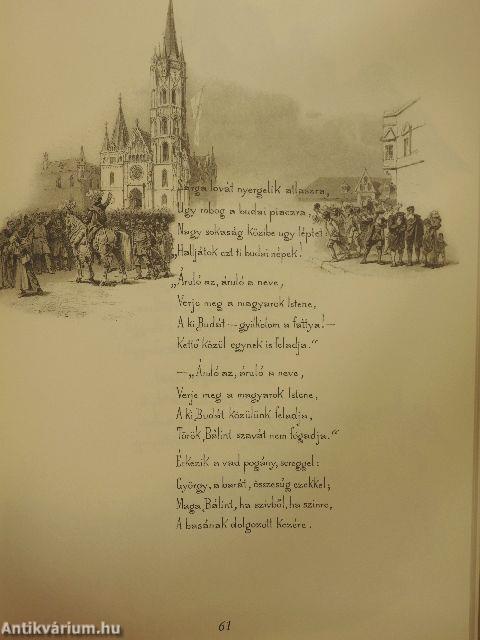 Sárga lovát nyergelik atlaszra,
Úgy robog a budai piaczra;
Nagy sokaság közibe ugy léptet:
„Halljátok ezt ti budai népek.
„Áruló az, áruló a neve,
Verje meg a magyarok Istene,
A ki Budát – gyilkolom a fattya! –
Kettő közül egynek is feladja.“
– „Áruló az, áruló a neve,
Verje meg a magyarok Istene,
A ki Budát közülünk feladja,
Török Bálint szavát nem fogadja.“
Érkezik a vad pogány, sereggel:
György, a barát, összesúg ezekkel;
Maga Bálint, ha szivből, ha szinre,
A basának dolgozott kezére.
61
Antikvárium.hu